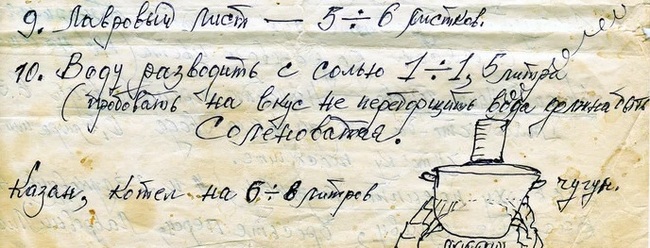 9. Лавровый лист — 5÷6 листков.
10. Воду разводить с солью 1÷1,5 литра
(пробовать на вкус не переборщить вода должна быть
Солёноватая.
Казан, котел на 6÷8 литров
чугун.